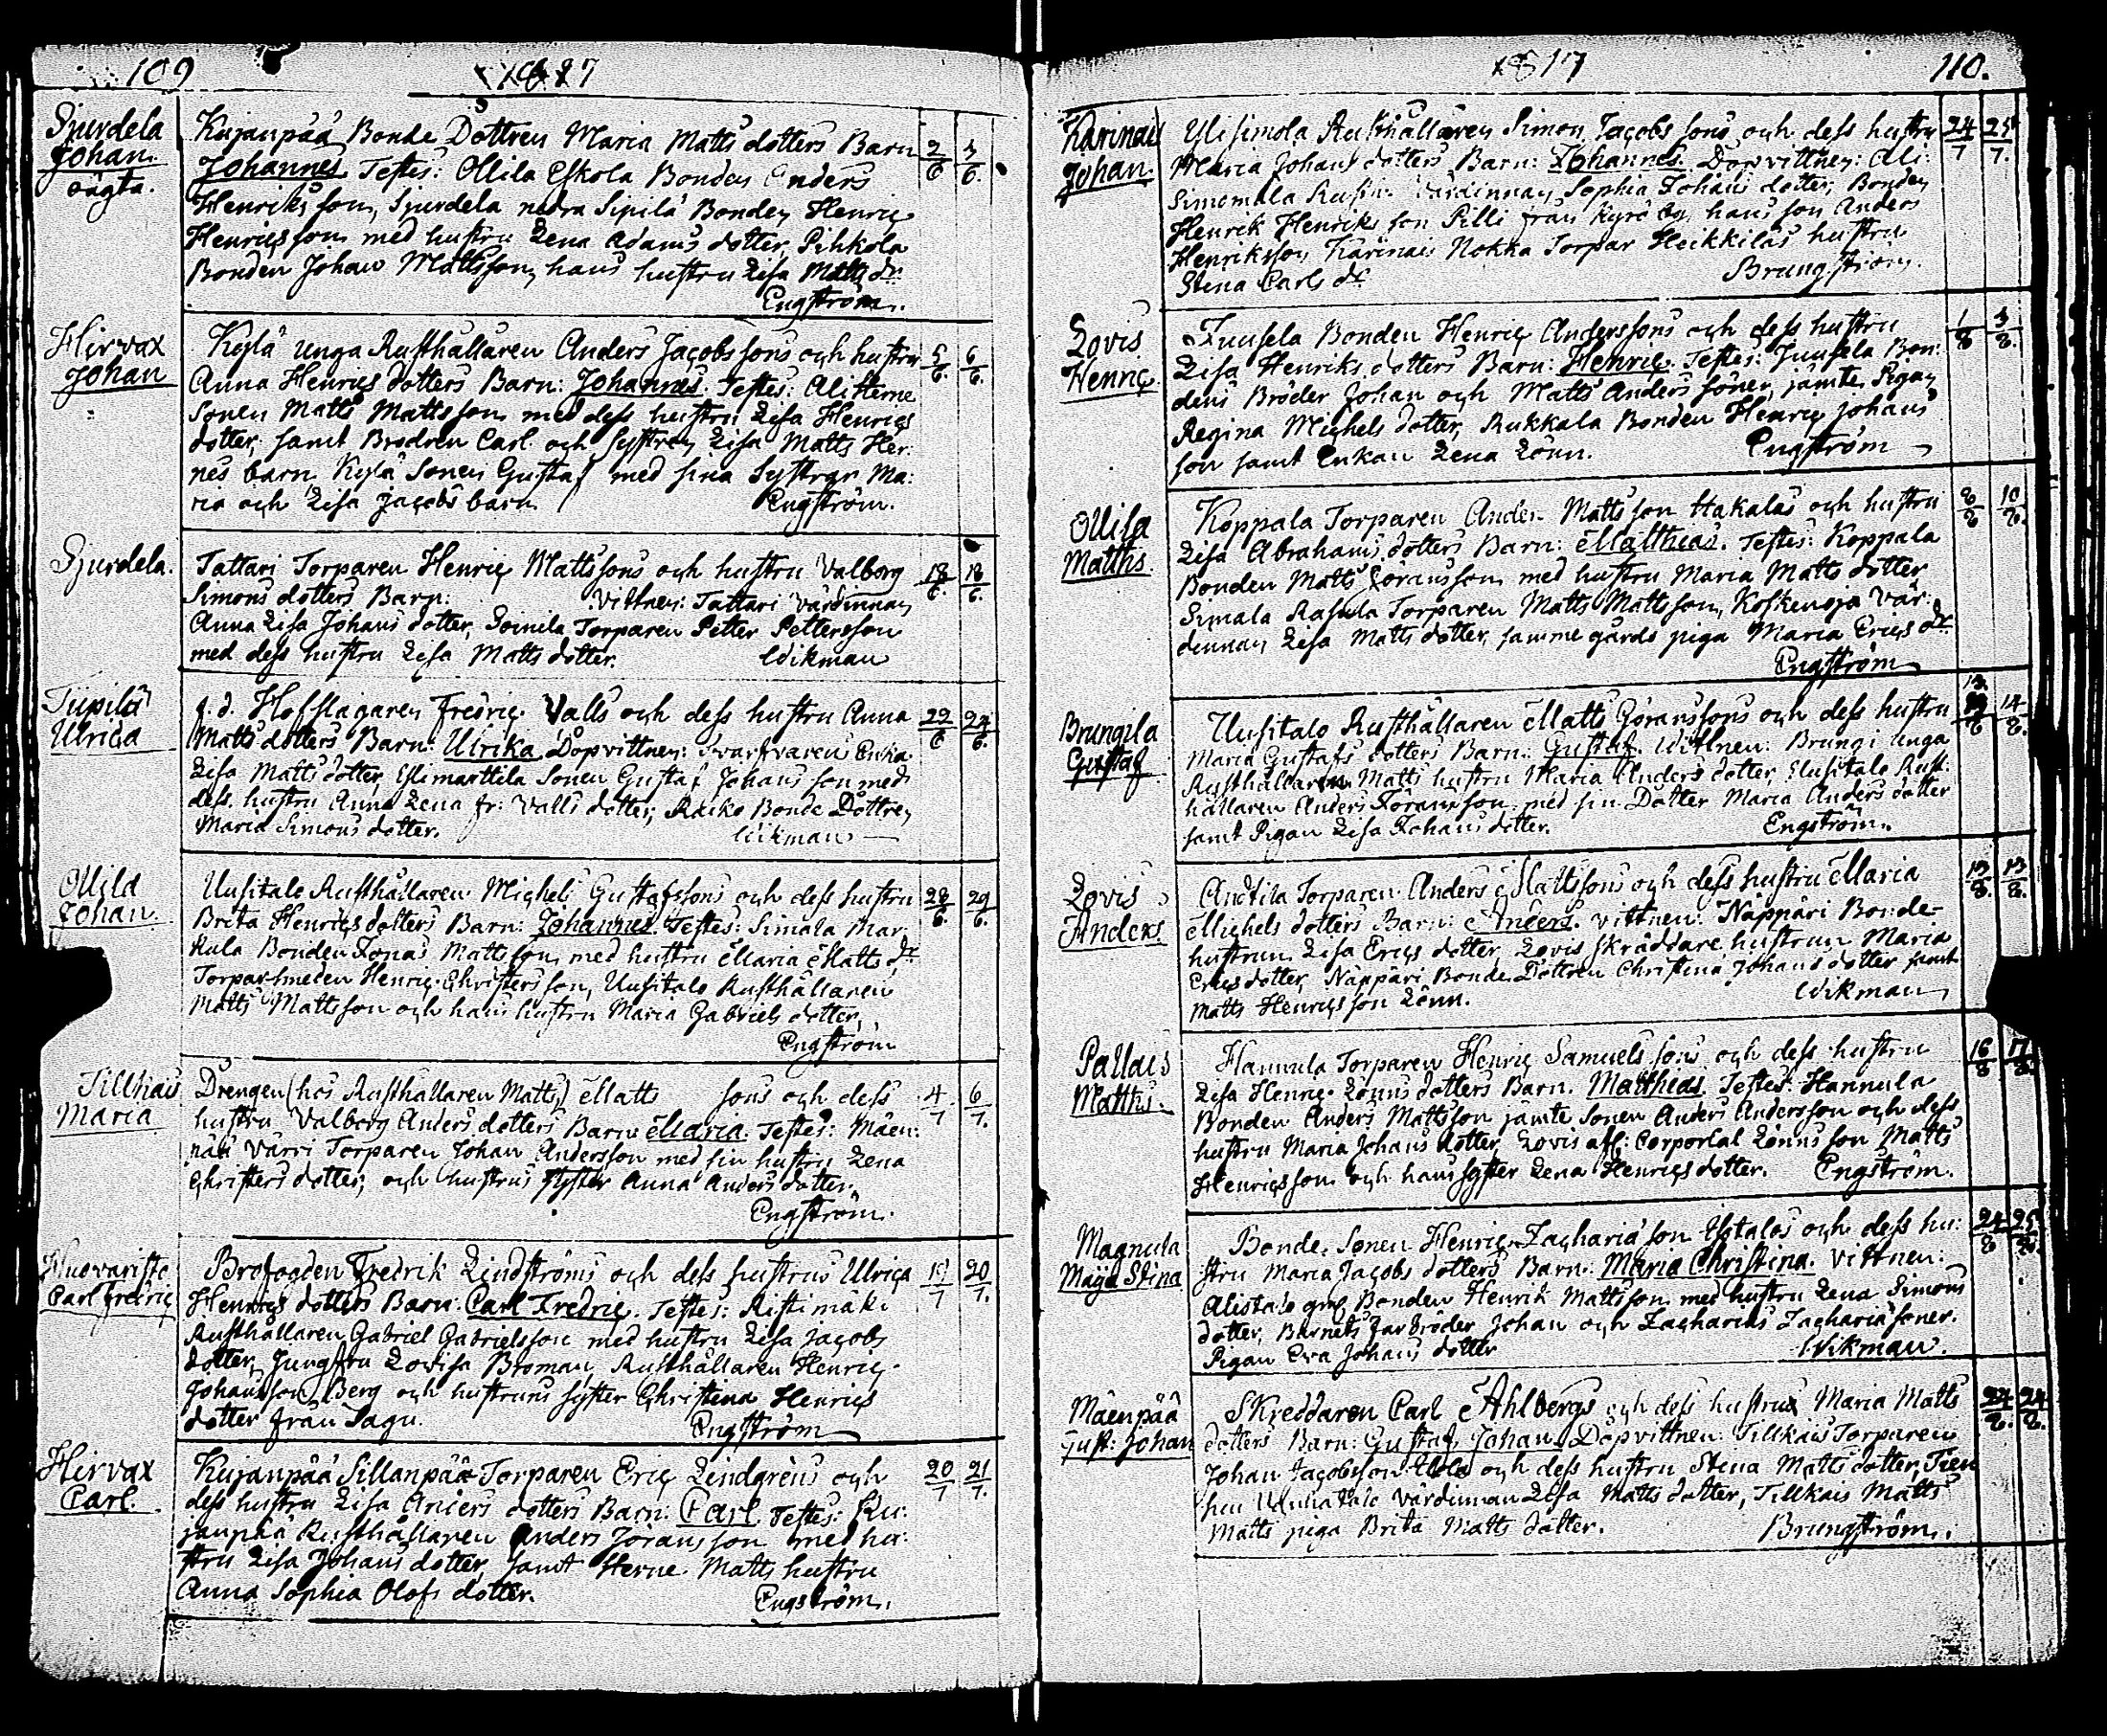 109 1817
Sjurdela Johan oägta.
Kujanpää Bonde Dottren Maria Matts dotters Barn 2/6 3/6.
Johannes. Testes: Ollila Eskola Bonden Anders
Henriks son, Sjurdela nedra Sipilä Bonden Henric
Henricsson med hustru Lena Adams dotter, Pihkola
Bonden Johan Mattsson, hans hustru Lisa Matts dr.
Engström.
Hirvax Johan
Kylä unga Rusthållaren Anders Jacobs sons och hustru 5/6. 6/6.
Anna Henrics dotters Barn: Johannes. Testes: Ali Herne
Sonen Matts Mattsson med dess hustru Lisa Henrics
dotter, samt Brodren Carl och Systren Lisa Matts Her:
nes barn, Kylä Sonen Gustaf med sina Systrar Ma:
ria och Lisa Jacobs barn. Engström.
Sjurdela.
Tattari Torparen Henric Mattssons och hustru Valborg 18/6. 18/6.
Simons dotters Barn: Vittnen: Tattari Värdinnan
Anna Lisa Johans dotter, Soinila Torparen Petter Pettersson
med dess hustru Lisa Matts dotter. Wikman
Tiipilä Ulrica
f.d. Hofslagaren Fredric Valls och dess hustru Anna 22/6 24/6.
Matts dotters Barn: Ulrika. Dopvittnen: Svarfvarens Enka
Lisa Matts dotter, Ylimarttila Sonen Gustaf Johans son med
dess hustru Anna Lena fr: Valls dotter, Raiko Bonde Dottren
Maria Simons dotter. Wikman
Ollila Johan.
Uusitalo Rusthållaren Michels Gustafssons och dess hustru 28/6. 29/6.
Brita Henrics dotters Barn: Johannes. Testes: Simala Mar:
kula Bonden Jonas Mattsson med hustru Maria Matts dr.
Torpar Smeden Henric Christersson, Uusitalo Rusthållaren
Matts Mattsson och hans hustru Maria Gabriels dotter,
Engström
Tillkais Maria
Drengen (hos Rusthållaren Matts,) Matts sons och dess 4/7 6/7.
hustru Valborg Anders dotters Barn: Maria. Testes: Mäen:
pää Värri Torparen Johan Andersson med sin hustru Lena
Christers dotter, och hustrus Syster Anna Anders dotter.
Engström.
Huovaristo Carl Fredric
Brofogden Fredrik Lindströms och dess hustrus Ulrica 19/7 20/7.
Henrics dotters Barn: Carl Fredric. Testes: Ristimäki
Rusthållaren Gabriel Gabrielsson med hustru Lisa Jacobs
dotter, Jungfru Lovisa Broman, Rusthållaren Henric
Johansson Berg och hustruns syster Christina Henrics
dotter från Sagu. Engström
Hirvax Carl.
Kujanpää Sillanpää Torparen Eric Lindgrens och 20/7 21/7.
dess hustru Lisa Anders dotters Barn: Carl. Testes: Ku:
janpää Rusthållaren Anders Jöransson med hu:
stru Lisa Johans dotter, samt Herne Matts hustru
Anna Sophia Olofs dotter. Engström.
1817 110.
Karinais Johan.
Ylisimola Rusthållaren Simon Jacobs sons och dess hustru 24/7 25/7.
Maria Johans dotters Barn: Johannes. Dopvittnen: Ali:
Simomala Rusth. Värdinnan Sophia Johans dotter, Bonden
Henrik Henriks son Pilli från Kyrö by, hans son Anders
Henriksson, Karinais Nokka Torpar Heikkiläs hustru
Stena Carls dr. Brungström.
Lovis Henric
Juusela Bonden Henric Anderssons och dess hustru 1/8 3/8.
Lisa Henriks dotters Barn: Henric. Testes: Juusela Bon:
dens Bröder Johan och Matts Anders söner, jämte Pigan
Regina Michels dotter, Rukkala Bonden Henric Johans
son samt Enkan Lena Lönn. Engström
Ollila Matths.
Koppala Torparen Anders Mattsson Hakalas och hustru 8/8 10/8.
Lisa Abrahams dotters Barn: Matthias. Testes: Koppala
Bonden Matts Göransson med hustru Maria Matts dotter
Simala Rasula Torparen Matts Mattsson, Koskenoja Vär:
dinnan Lisa Matts dotter, samme gårds piga Maria Erics dr.
Engström
Brungila Gustaf
Uusitalo Rusthållaren Matts Göranssons och dess hustru 13/8 14/8.
Maria Gustafs dotters Barn: Gustaf. Wittnen: Brungi unga
Rusthållaren Matts hustru Maria Anders dotter, Uusitalo Rust:
hållaren Anders Jöransson med sin Dotter Maria Anders dotter
samt Pigan Lisa Johans dotter. Engström.
Lovis Anders.
Anttila Torparen Anders Mattssons och dess hustru Maria 13/8. 13/8.
Michels dotters Barn: Anders. Vittnen: Näppäri Bonde-
hustrun Lisa Erics dotter, Lovis Skräddare hustrun Maria
Erics dotter, Näppäri Bonde Dottren Christina Johans dotter samt
Matts Henricsson Lönn. Wikman
Pallais Matths.
Hannula Torparen Henric Samuels sons och dess hustru 16/8 17/8.
Lisa Henric Lönns dotters Barn. Matthias. Testes: Hannula
Bonden Anders Mattsson jämte Sonen Anders Andersson och dess
hustru Maria Johans dotter, Lovis afl: Corporlal Lönns son Matts
Henricsson och hans syster Lena Henrics dotter. Engström.
Magnula Maija Stina
Bonde Sonen Henric Zacharia son Ystalos och dess hu: 24/8 25/8.
stru Maria Jacobs dotters Barn: Maria Christina. Vittnen:
Alistalo Bonden Henrik Mattsson med hustru Lena Simons
dotter, Barnets farbröder Johan och Zacharias Zacharia söner.
Pigan Eva Johans dotter Wikman.
Mäenpää Gust: Johan
Skreddaren Carl Ahlbergs och dess hustrus Maria Matts 24/8. 24/8.
dotters Barn: Gustaf Johan. Döpvittnen: Tillkais Torparen
Johan Jacobsson och dess hustru Stena Matts dotter, Tien
suu Värdinnan Lisa Matts dotter, Tillkais Matts
Matts piga Brita Matts dotter. Brungström.